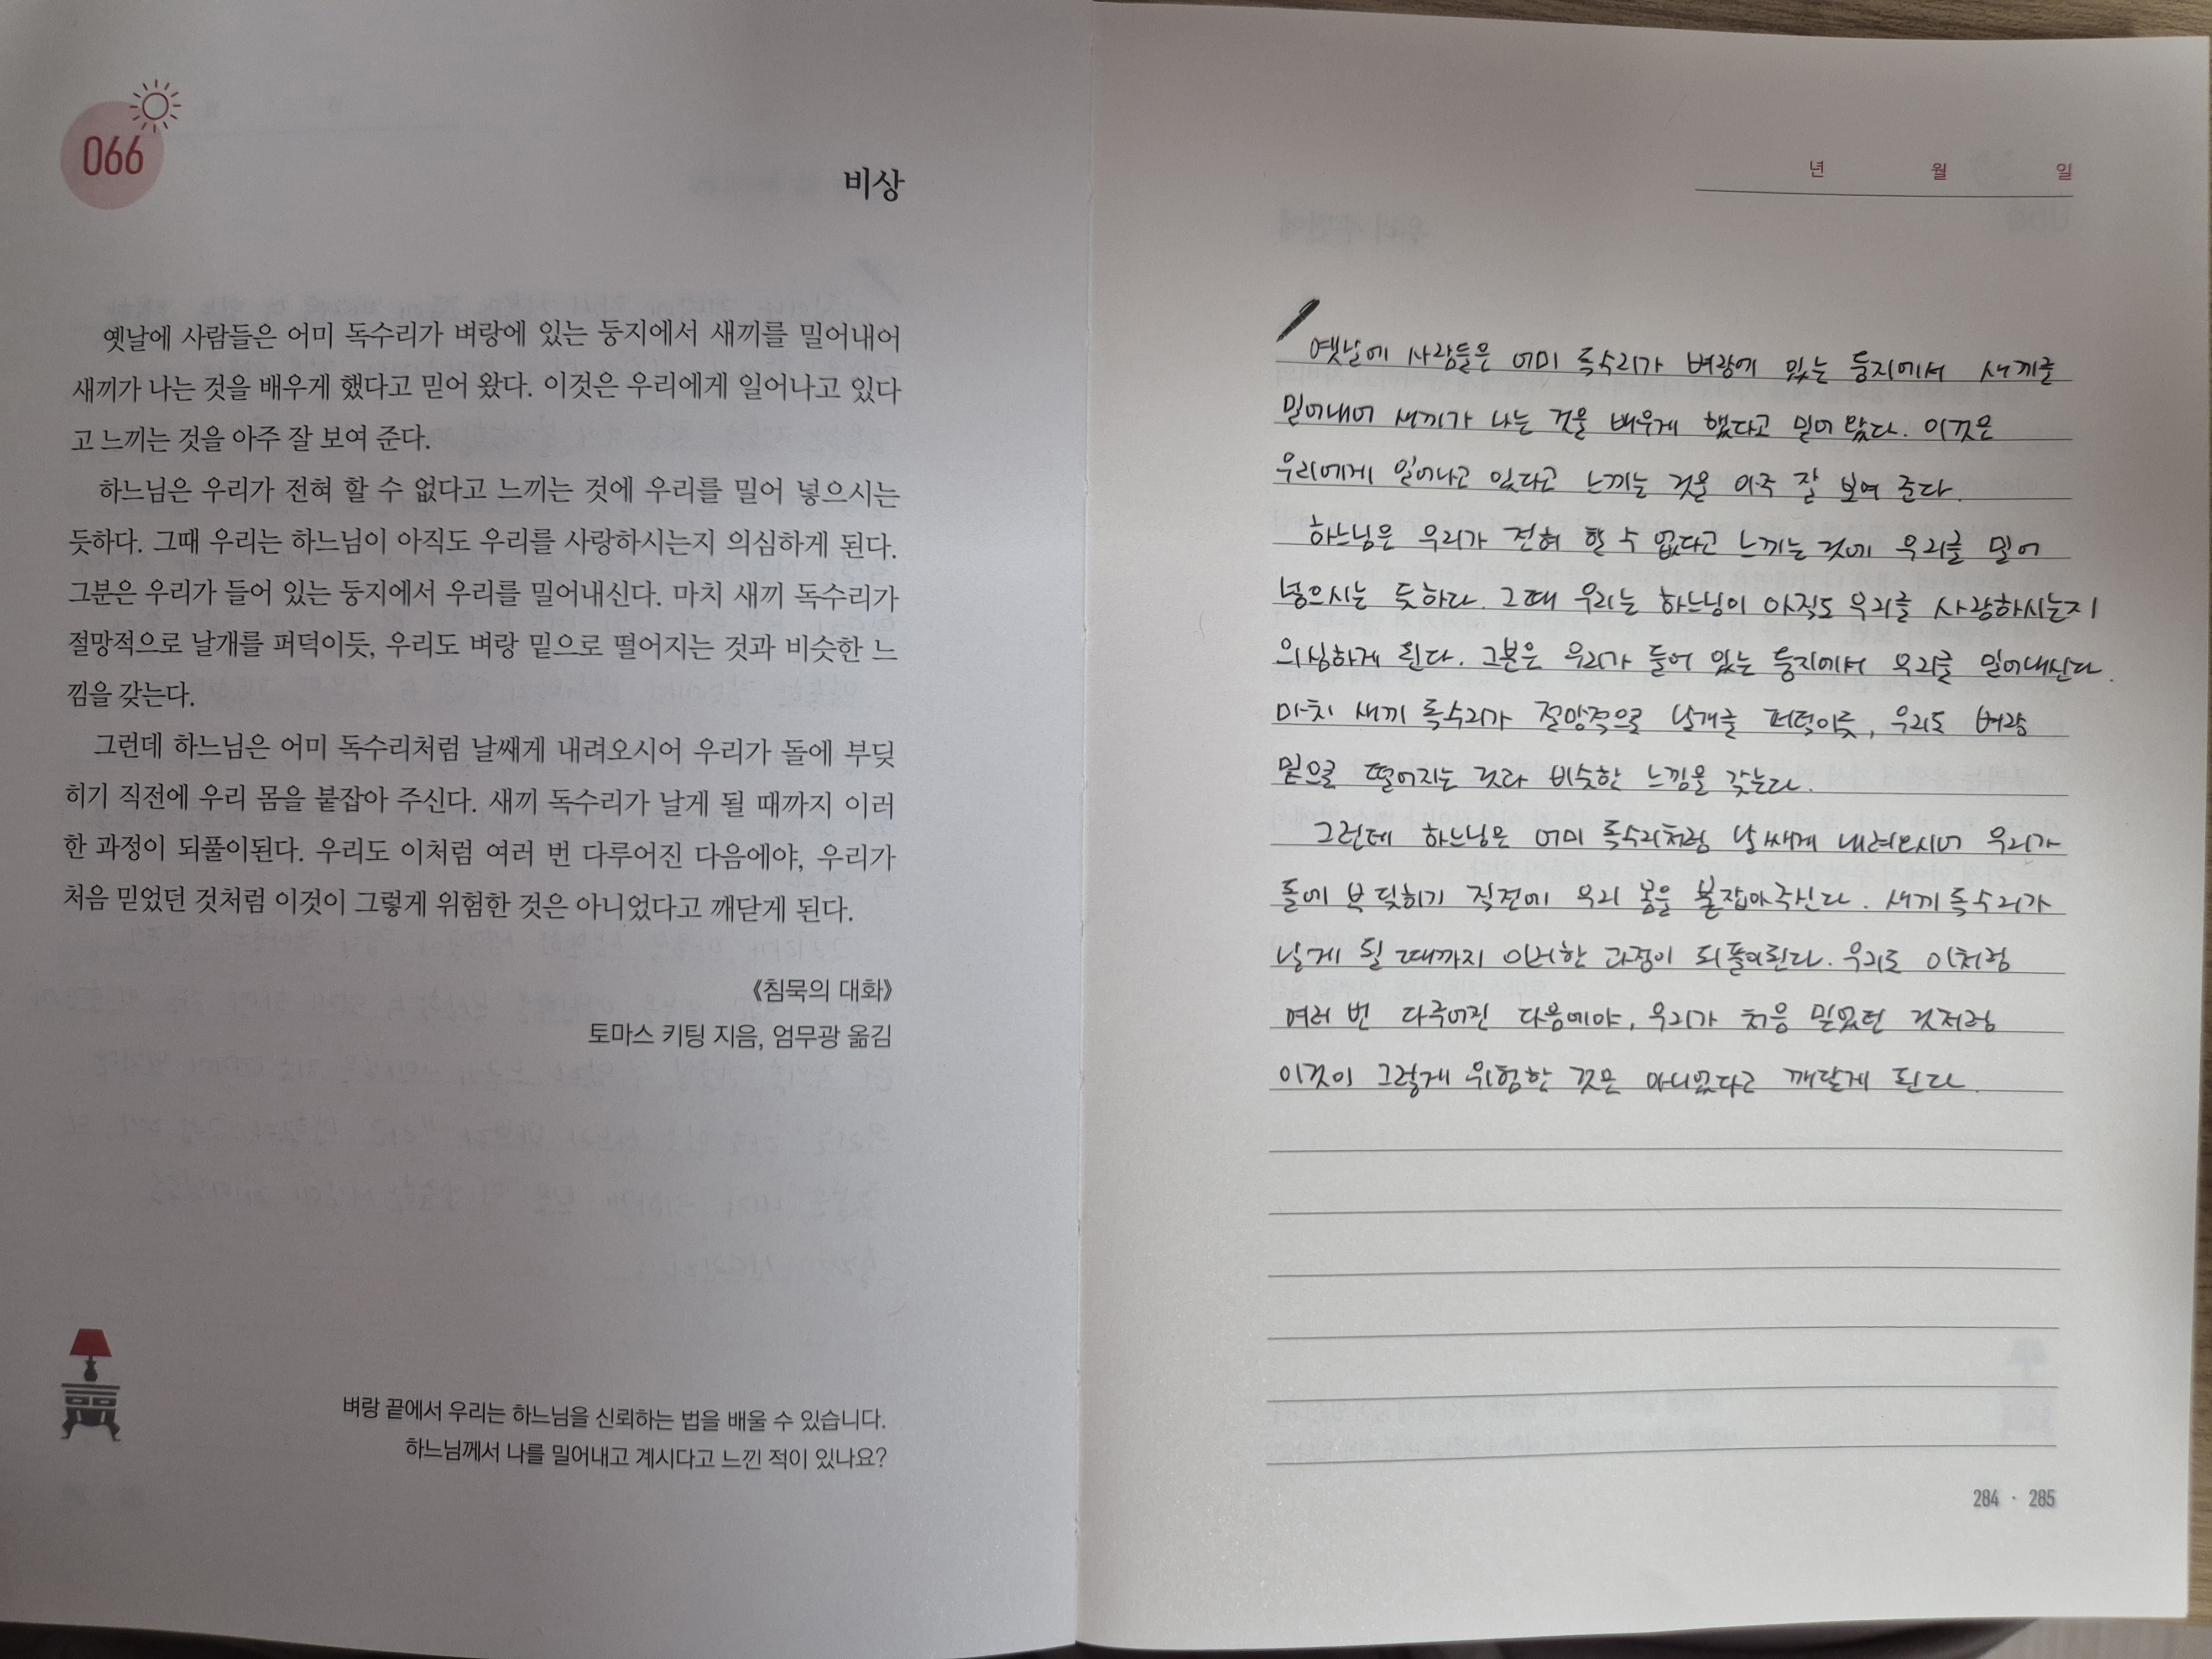 066
비상
옛날에 사람들은 어미 독수리가 벼랑에 있는 둥지에서 새끼를 밀어내어
새끼가 나는 것을 배우게 했다고 믿어 왔다. 이것은 우리에게 일어나고 있다
고 느끼는 것을 아주 잘 보여 준다.
하느님은 우리가 전혀 할 수 없다고 느끼는 것에 우리를 밀어 넣으시는
듯하다. 그때 우리는 하느님이 아직도 우리를 사랑하시는지 의심하게 된다.
그분은 우리가 들어 있는 둥지에서 우리를 밀어내신다. 마치 새끼 독수리가
절망적으로 날개를 퍼덕이듯, 우리도 벼랑 밑으로 떨어지는 것과 비슷한 느
낌을 갖는다.
그런데 하느님은 어미 독수리처럼 날쌔게 내려오시어 우리가 돌에 부딪
히기 직전에 우리 몸을 붙잡아 주신다. 새끼 독수리가 날게 될 때까지 이러
한 과정이 되풀이된다. 우리도 이처럼 여러 번 다루어진 다음에야, 우리가
처음 믿었던 것처럼 이것이 그렇게 위험한 것은 아니었다고 깨닫게 된다.
《침묵의 대화》
토마스 키팅 지음, 엄무광 옮김
벼랑 끝에서 우리는 하느님을 신뢰하는 법을 배울 수 있습니다.
하느님께서 나를 밀어내고 계시다고 느낀 적이 있나요?
년 월 일
옛날에 사람들은 어미 독수리가 벼랑에 있는 둥지에서 새끼를
밀어내어 새끼가 나는 것을 배우게 했다고 믿어 왔다. 이것은
우리에게 일어나고 있다고 느끼는 것을 아주 잘 보여 준다.
하느님은 우리가 전혀 할 수 없다고 느끼는 것에 우리를 밀어
넣으시는 듯하다. 그때 우리는 하느님이 아직도 우리를 사랑하시는지
의심하게 된다. 그분은 우리가 들어 있는 둥지에서 우리를 밀어내신다.
마치 새끼 독수리가 절망적으로 날개를 퍼덕이듯, 우리도 벼랑
밑으로 떨어지는 것과 비슷한 느낌을 갖는다.
그런데 하느님은 어미 독수리처럼 날쌔게 내려오시어 우리가
돌에 부딪히기 직전에 우리 몸을 붙잡아주신다. 새끼 독수리가
날게 될 때까지 이러한 과정이 되풀이된다. 우리도 이처럼
여러 번 다루어진 다음에야, 우리가 처음 믿었던 것처럼
이것이 그렇게 위험한 것은 아니었다고 깨닫게 된다.
284 · 285